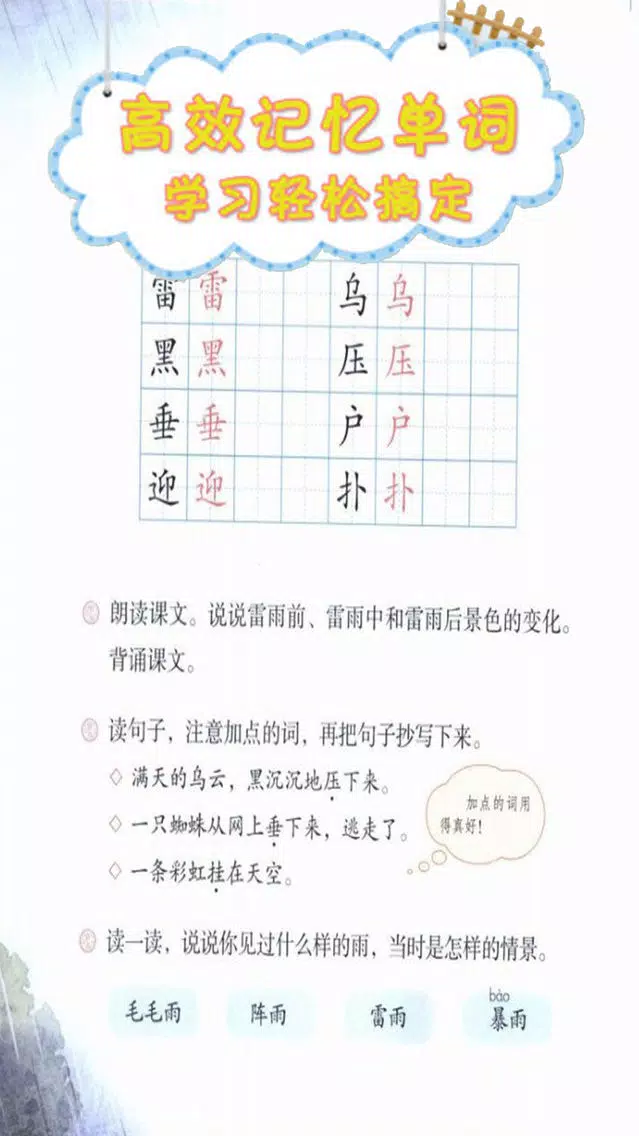 高效记忆单词
学习轻松搞定
雷 雷 乌 乌
黑 黑 压 压
垂 垂 户 户
迎 迎 扑 扑
朗读课文。说说雷雨前、雷雨中和雷雨后景色的变化。
背诵课文。
读句子，注意加点的词，再把句子抄写下来。
◇ 满天的乌云，黑沉沉地压下来。
◇ 一只蜘蛛从网上垂下来，逃走了。
◇ 一条彩虹挂在天空。
加点的词用
得真好！
读一读，说说你见过什么样的雨，当时是怎样的情景。
bào
毛毛雨 阵雨 雷雨 暴雨